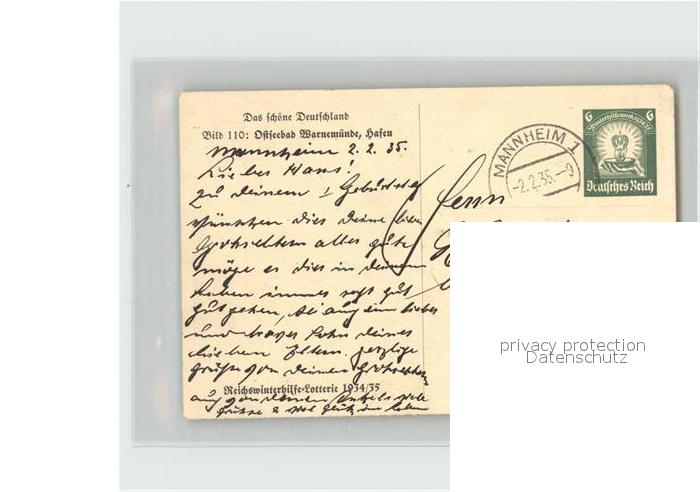 Das schöne Deutschland
Bild 110: Ostseebad Warnemünde, Hafen
Mannheim 2. 2. 35.
Liebes Hans!
zu deinem 1 Geburtstag
wünschen dir deine lieben
Großeltern alles gute
möge es dir in deinem
Leben immer recht gut
gehen, sei auch ein liebes
und braves deines
lieben Eltern. herzliche
grüße von deinen Großeltern
Reichswinterhilfe-Lotterie 1934/35
auch von deinen viele
grüße u viel glück im leben
MANNHEIM 1
-2.2.35.--9
6 6
Winterhilfswerk 1934/35
Deutsches Reich
Herrn
privacy protection
Datenschutz